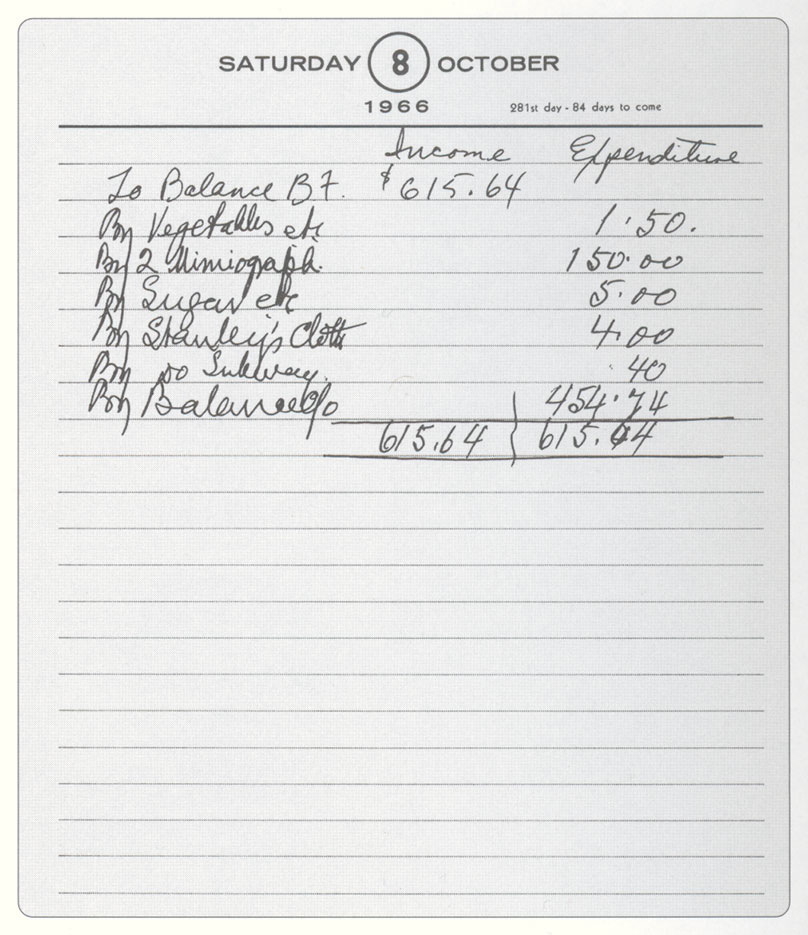 SATURDAY 8 OCTOBER
1966 281st day - 84 days to come
Income Expenditure
To Balance B F. $615.64
By Vegetables etc 1.50.
By 2 Mimiograph. 150.00
By Sugar etc 5.00
By Stanley's Cloth 4.00
By do Subway. .40
By Balance c/o 454.74
615.64 615.64